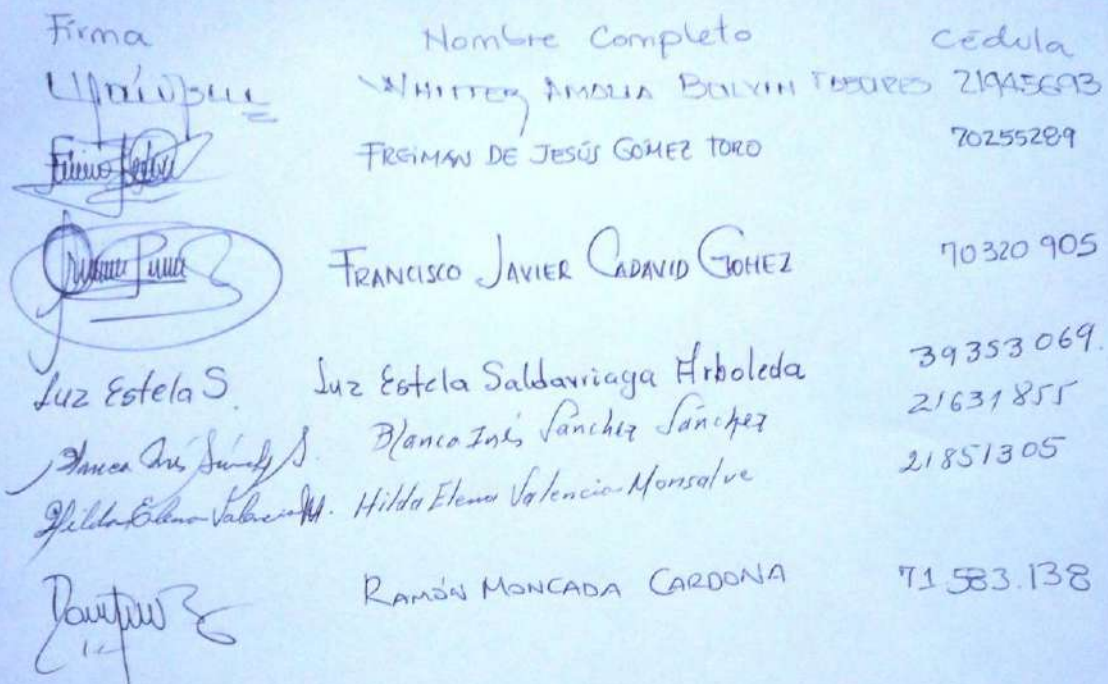 Firma Nombre Completo Cédula
WHITTEY AMALIA BOLVIN TABARES 21945693
FREIMAN DE JESÚS GÓMEZ TORO 70255289
FRANCISCO JAVIER CADAVID GOMEZ 70320 905
Luz Estela S. Luz Estela Saldarriaga Arboleda 39353 069.
Blanca Inés Sánchez S. Blanca Inés Sánchez Sánchez 21631855
Hilda Elena Valencia M. Hilda Elena Valencia Monsalve 21851305
RAMÓN MONCADA CARDONA 71.583.138